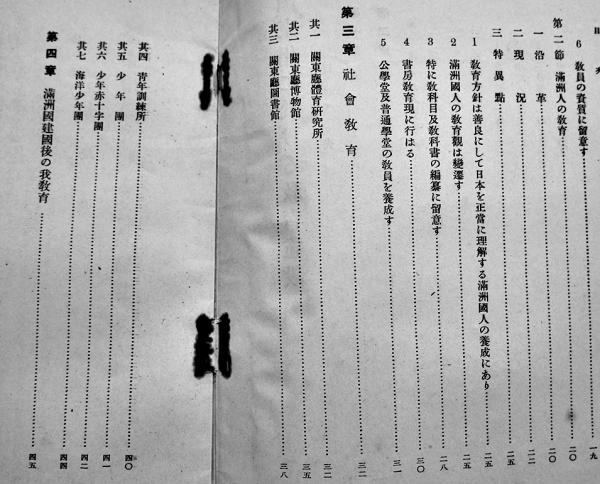 目次
6 敎員の資質に留意す……一九
第二節 滿洲人の敎育……二〇
一 沿革……二〇
二 現況……二二
三 特異點……二五
1 敎育方針は善良にして日本を正當に理解する滿洲國人の養成にあり……二五
2 滿洲國人の敎育觀は變遷す……二五
3 特に敎科目及敎科書の編纂に留意す……二八
4 書房敎育現に行はる……三〇
5 公學堂及普通學堂の敎員を養成す……三一
第三章 社會敎育……三二
其一 關東廳體育硏究所……三二
其二 關東廳博物館……三五
其三 關東廳圖書館……三八
其四 靑年訓練所……四〇
其五 少年團……四〇
其六 少年赤十字團……四一
其七 海洋少年團……四二
第四章 滿洲國建國後の我敎育……四五